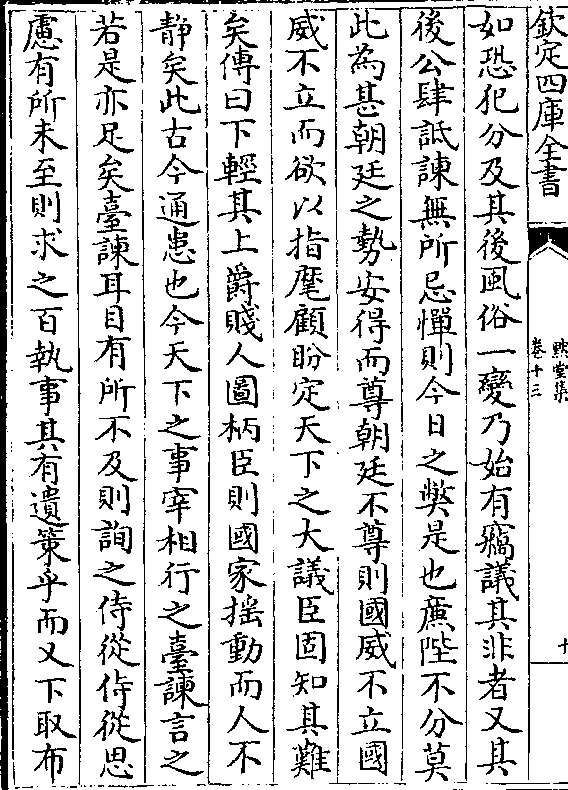 欽定四庫全書
黙堂集
卷十三
十
如恐犯分及其後風俗一變乃始有竊議其非者又其
後公肆詆諫無所忌憚則今日之弊是也廉陛不分莫
此為甚朝廷之勢安得而尊朝廷不尊則國威不立國
威不立而欲以指麾顧盼定天下之大議臣固知其難
矣傳曰下輕其上爵賤人圖柄臣則國家揺動而人不
静矣此古今通患也今天下之事宰相行之臺諫言之
若是亦足矣臺諫耳目有所不及則詢之侍從侍從思
慮有所未至則求之百執事其有遺策乎而又下取布